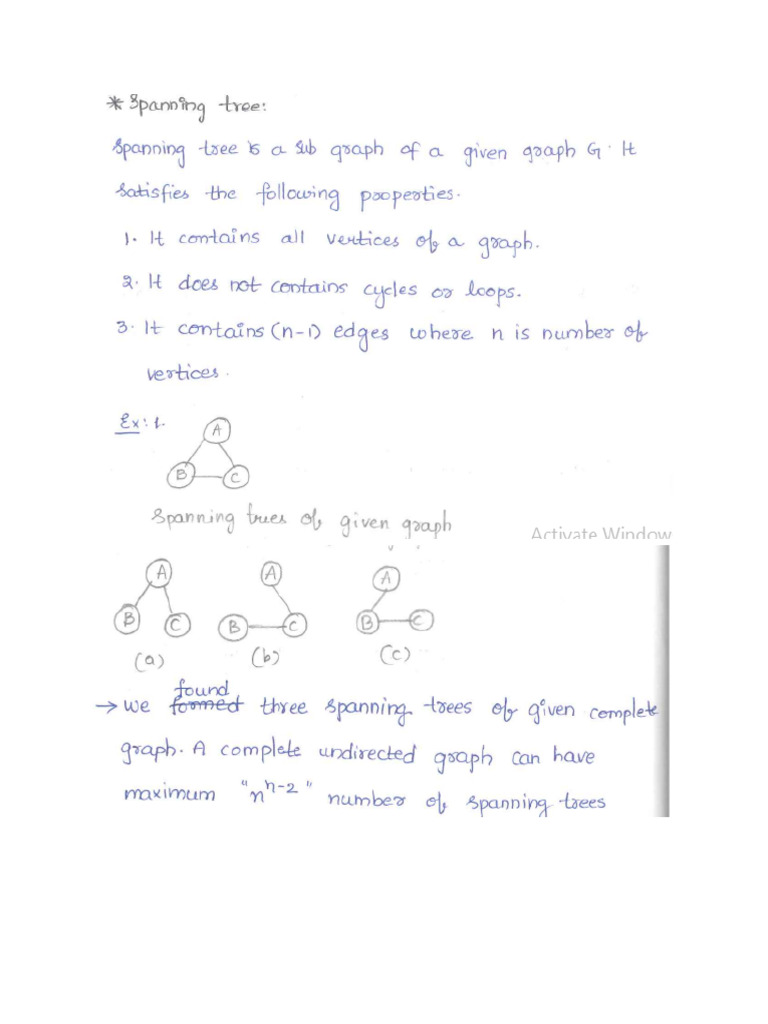 * Spanning tree:
Spanning tree is a sub graph of a given graph G. It
satisfies the following properties.
1. It contains all vertices of a graph.
2. It does not contains cycles or loops.
3. It contains (n-1) edges where n is number of
vertices.
Ex: 1.
A
B C
Spanning trees of given graph
Activate Window
A A A
B C B C B C
(a) (b) (c)
found
→ we formed three spanning trees of given complete
graph. A complete undirected graph can have
maximum "n^n-2" number of spanning trees